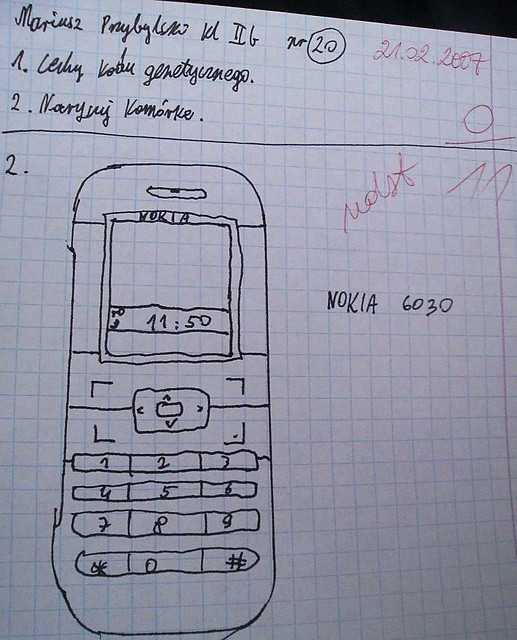 Mariusz Przybylski kl II b nr 20
21.02.2007
1. Cechy kodu genetycznego.
2. Narysuj komórkę.
0
11
ndst
2.
NOKIA
NOKIA 6030
11:50
1 2 3
4 5 6
7 8 9
* 0 #